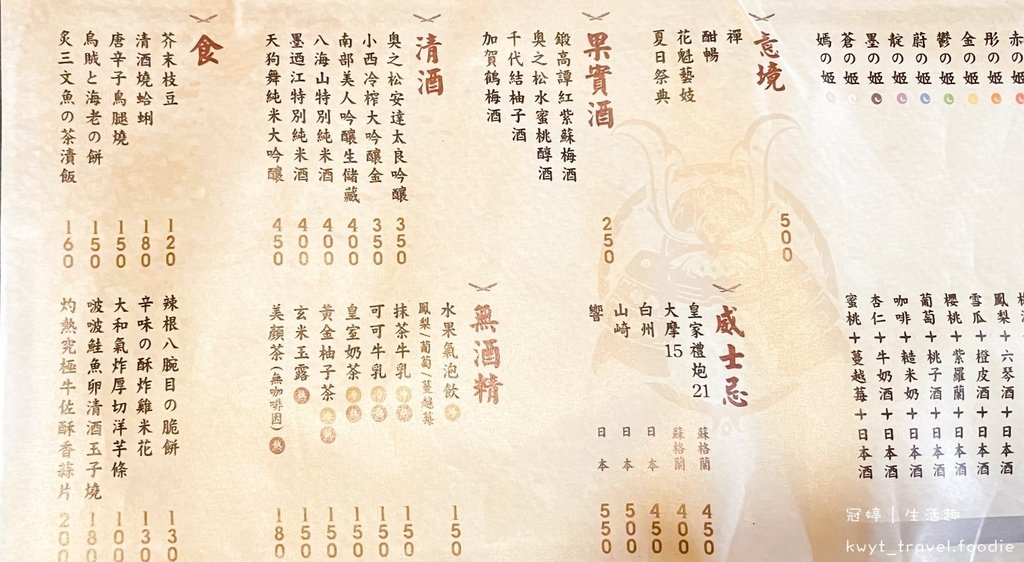 赤の姬
彤の姬
金の姬
鬱の姬
蔚の姬
靛の姬
墨の姬
蒼の姬
嫣の姬
鳳梨＋六琴酒＋日本酒
雪瓜＋橙皮酒＋日本酒
櫻桃＋紫羅蘭＋日本酒
葡萄＋桃子酒＋日本酒
咖啡＋糙米奶＋日本酒
杏仁＋牛奶酒＋日本酒
蜜桃＋蔓越莓＋日本酒
意境 500
禪
酣暢
花魁藝妓
夏日祭典
果實酒 250
鍛高譚紅紫蘇梅酒
奧之松水蜜桃醇酒
千代結柚子酒
加賀鶴梅酒
威士忌
皇家禮炮21 蘇格蘭 450
大摩15 蘇格蘭 400
白州 日本 450
山崎 日本 500
響 日本 550
清酒
奧之松安達太良吟釀 350
小西冷榨大吟釀金 350
南部美人吟釀生儲藏 400
八海山特別純米酒 400
墨迺江特別純米酒 400
天狗舞純米大吟釀 450
無酒精
水果氣泡飲 150
鳳梨/葡萄/蔓越莓
抹茶牛乳 150
可可牛乳 150
皇室奶茶 150
黃金柚子茶 150
玄米玉露 熱 150
美顏茶(無咖啡因) 熱 180
食
芥末枝豆 120
清酒燒蛤蜊 180
唐辛子鳥腿燒 150
烏賊と海老の餅 150
炙三文魚の茶漬飯 160
辣根八腕目の脆餅 130
辛味の酥炸雞米花 130
大和氣炸厚切洋芋條 100
啵啵鮭魚卵清酒玉子燒 180
灼熱究極牛佐酥香蒜片 200
冠婷｜生活趣
kwyt_travel.foodie